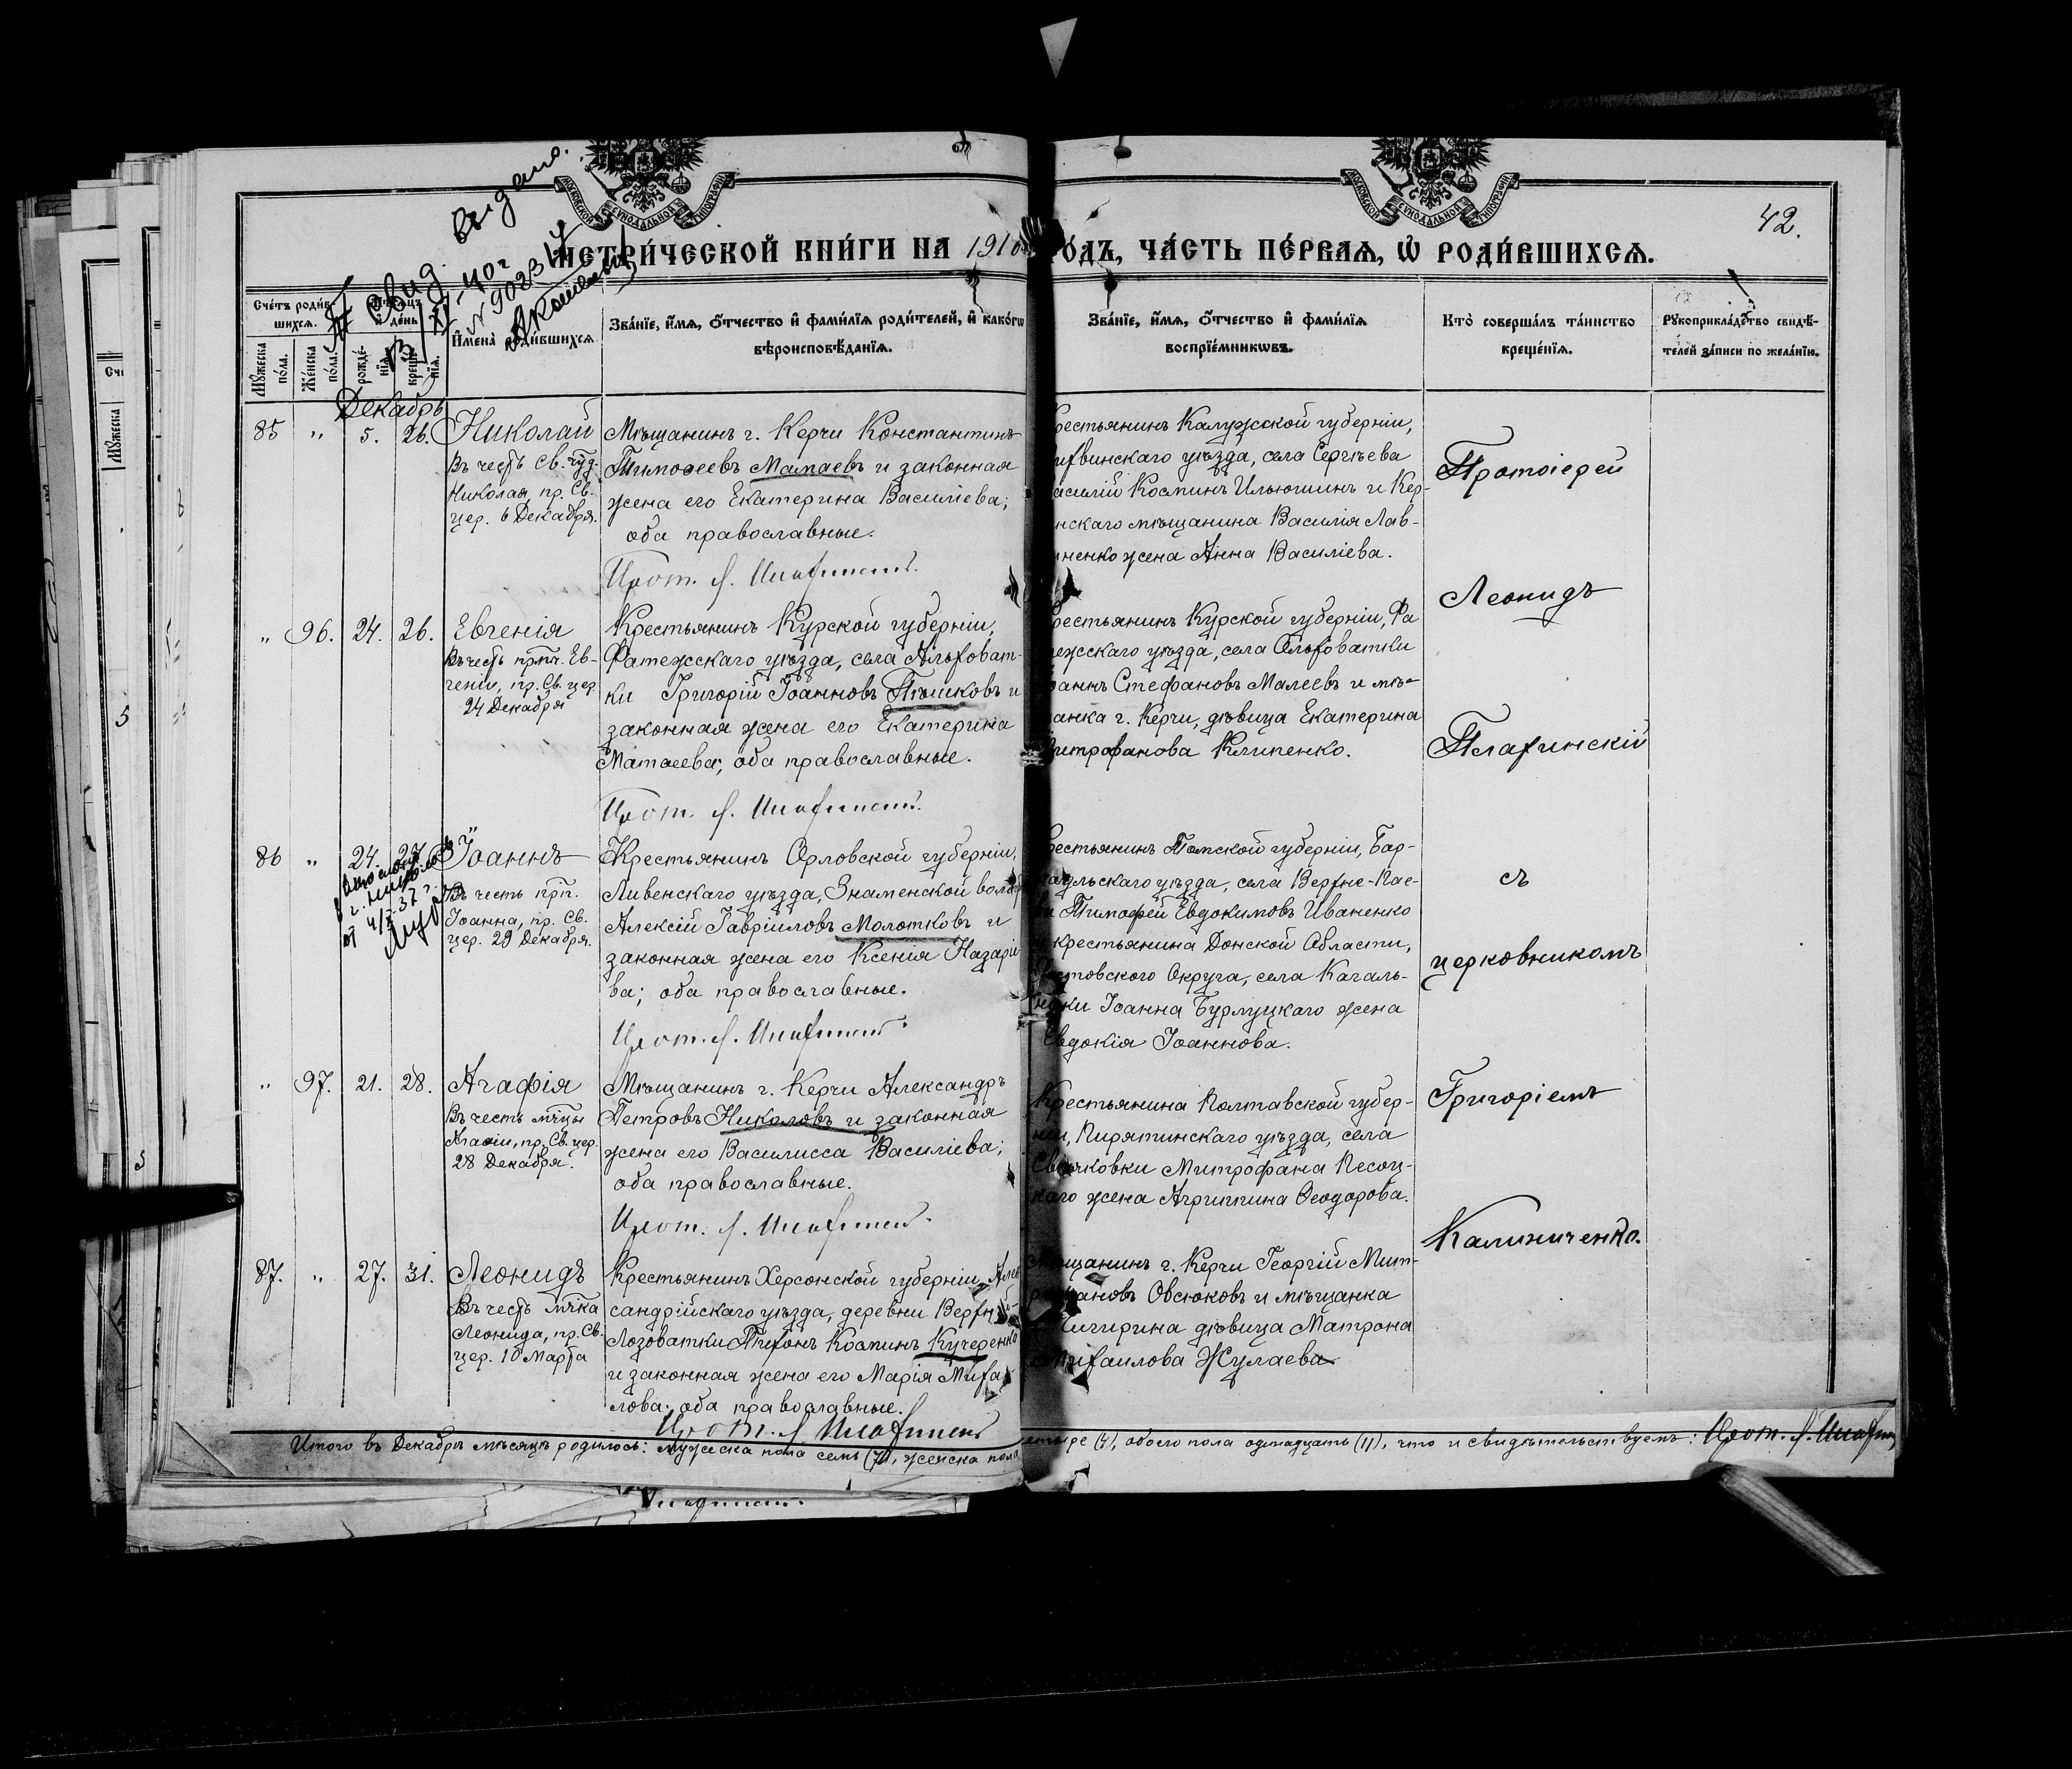 42.
МЕТРИ́ЧЕСКОЙ КНИ́ГИ НА 1910 ГО́ДЪ, ЧА́СТЬ ПЕ́РВАЯ, Ѿ РОДИ́ВШИХСЯ.
МОСКОВСКОЙ СѴНОДАЛЬНОЙ ТИПОГРАФІИ
МОСКОВСКОЙ СѴНОДАЛЬНОЙ ТИПОГРАФІИ
Выдано.
Свид
№ 9023
Сче́тъ роди́в-
шихся.
Мꙋ́жеска по́ла.
Же́нска по́ла.
Мѣ́сяцъ и де́нь
рожде́-
нія.
креще́-
нія.
И҆мена̀ роди́вшихся
Зва́нїе, и҆́мя, ѻ҆́тчество и҆ фами́лїя роди́телей, и҆ како́гѡ
вѣроисповѣ́данїя.
Зва́нїе, и҆́мя, ѻ҆́тчество и҆ фами́лїя
воспрїе́мникѡвъ.
Кто̀ соверша́лъ та́инство
креще́нїя.
Рꙋкоприкла́дство свидѣ́-
телей за́писи по жела́нїю.
Декабрь
85 " 5. 26. Николай
Въ честь Св. чуд.
Николая, пр. Св.
цер. 6 Декабря.
Мѣщанинъ г. Керчи Константинъ
Тимоѳеевъ Мамаевъ и законная
жена его Екатерина Василіева;
оба православные.
Прот. Л.
рестьянинъ Калужской губерніи,
ихвинскаго уѣзда, села Сергѣева
асилій Косминъ Ильюшинъ и Кер-
нскаго мѣщанина Василія Лав-
иненко жена Анна Василіева.
" 96. 24. 26. Евгенія
Въ честь прпмч. Ев-
геніи, пр. Св. цер.
24 Декабря
Крестьянинъ Курской губерніи,
Фатежскаго уѣзда, села Альховат-
ки Григорій Іоанновъ Пѣшковъ и
законная жена его Екатерина
Матѳеева; оба православные.
Прот. Л.
рестьянинъ Курской губерніи, Фа
ежскаго уѣзда, села Ольховатки
оаннъ Стефановъ Малеевъ и мѣ-
анка г. Керчи, дѣвица Екатерина
итрофанова Клипенко.
86 " 24. 27. Іоаннъ
Въ честь прп.
Іоанна, пр. Св.
цер. 29 Декабря.
от 4/X 37 г.
Крестьянинъ Орловской губерніи,
Ливенскаго уѣзда, Знаменской воло
Алексій Гавріиловъ Молотковъ и
законная жена его Ксенія Назаріе
ва; оба православные.
Прот. Л.
рестьянинъ Томской губерніи, Бар-
наульскаго уѣзда, села Верхне-Пае-
ва Тимофей Евдокимовъ Иваненко
крестьянина Донской Области,
Ростовского Округа, села Кагаль-
ники Іоанна Бурлуцкаго жена
Евдокія Іоаннова.
" 97. 21. 28. Агафія
Въ честь мчцы
Агаѳіи, пр. Св. цер.
28 Декабря.
Мѣщанинъ г. Керчи Александръ
Петровъ Николовъ и законная
жена его Василисса Василіева;
оба православные.
Прот. Л.
Крестьянина Полтавской губер-
ніи, Пирятинскаго уѣзда, села
Свѣчковки Митрофана Песоц-
каго жена Агриппина Ѳеодорова.
87. " 27. 31. Леонидъ
Въ честь мчка
Леонида, пр. Св.
цер. 10 Марта
Крестьянинъ Херсонской губерніи, Алек
сандрійскаго уѣзда, деревни Верхне-
Лозоватки Тихонъ Косминъ Кучеренко
и законная жена его Марія Михаи
лова; оба православные.
Прот. Л.
Мѣщанинъ г. Керчи Георгій Мит-
рофановъ Овсюковъ и мѣщанка
Чигирина дѣвица Матрона
Михаилова Жулаева
Протоіерей
Леонидъ
Плагинскій
съ
церковникомъ
Григоріемъ
Калиниченко.
Итого въ Декабрѣ мѣсяцѣ родилось: мужеска пола семь (7), женска пола четыре (4), обоего пола одинадцать (11), что и свидѣтельствуемъ: Прот. Л.